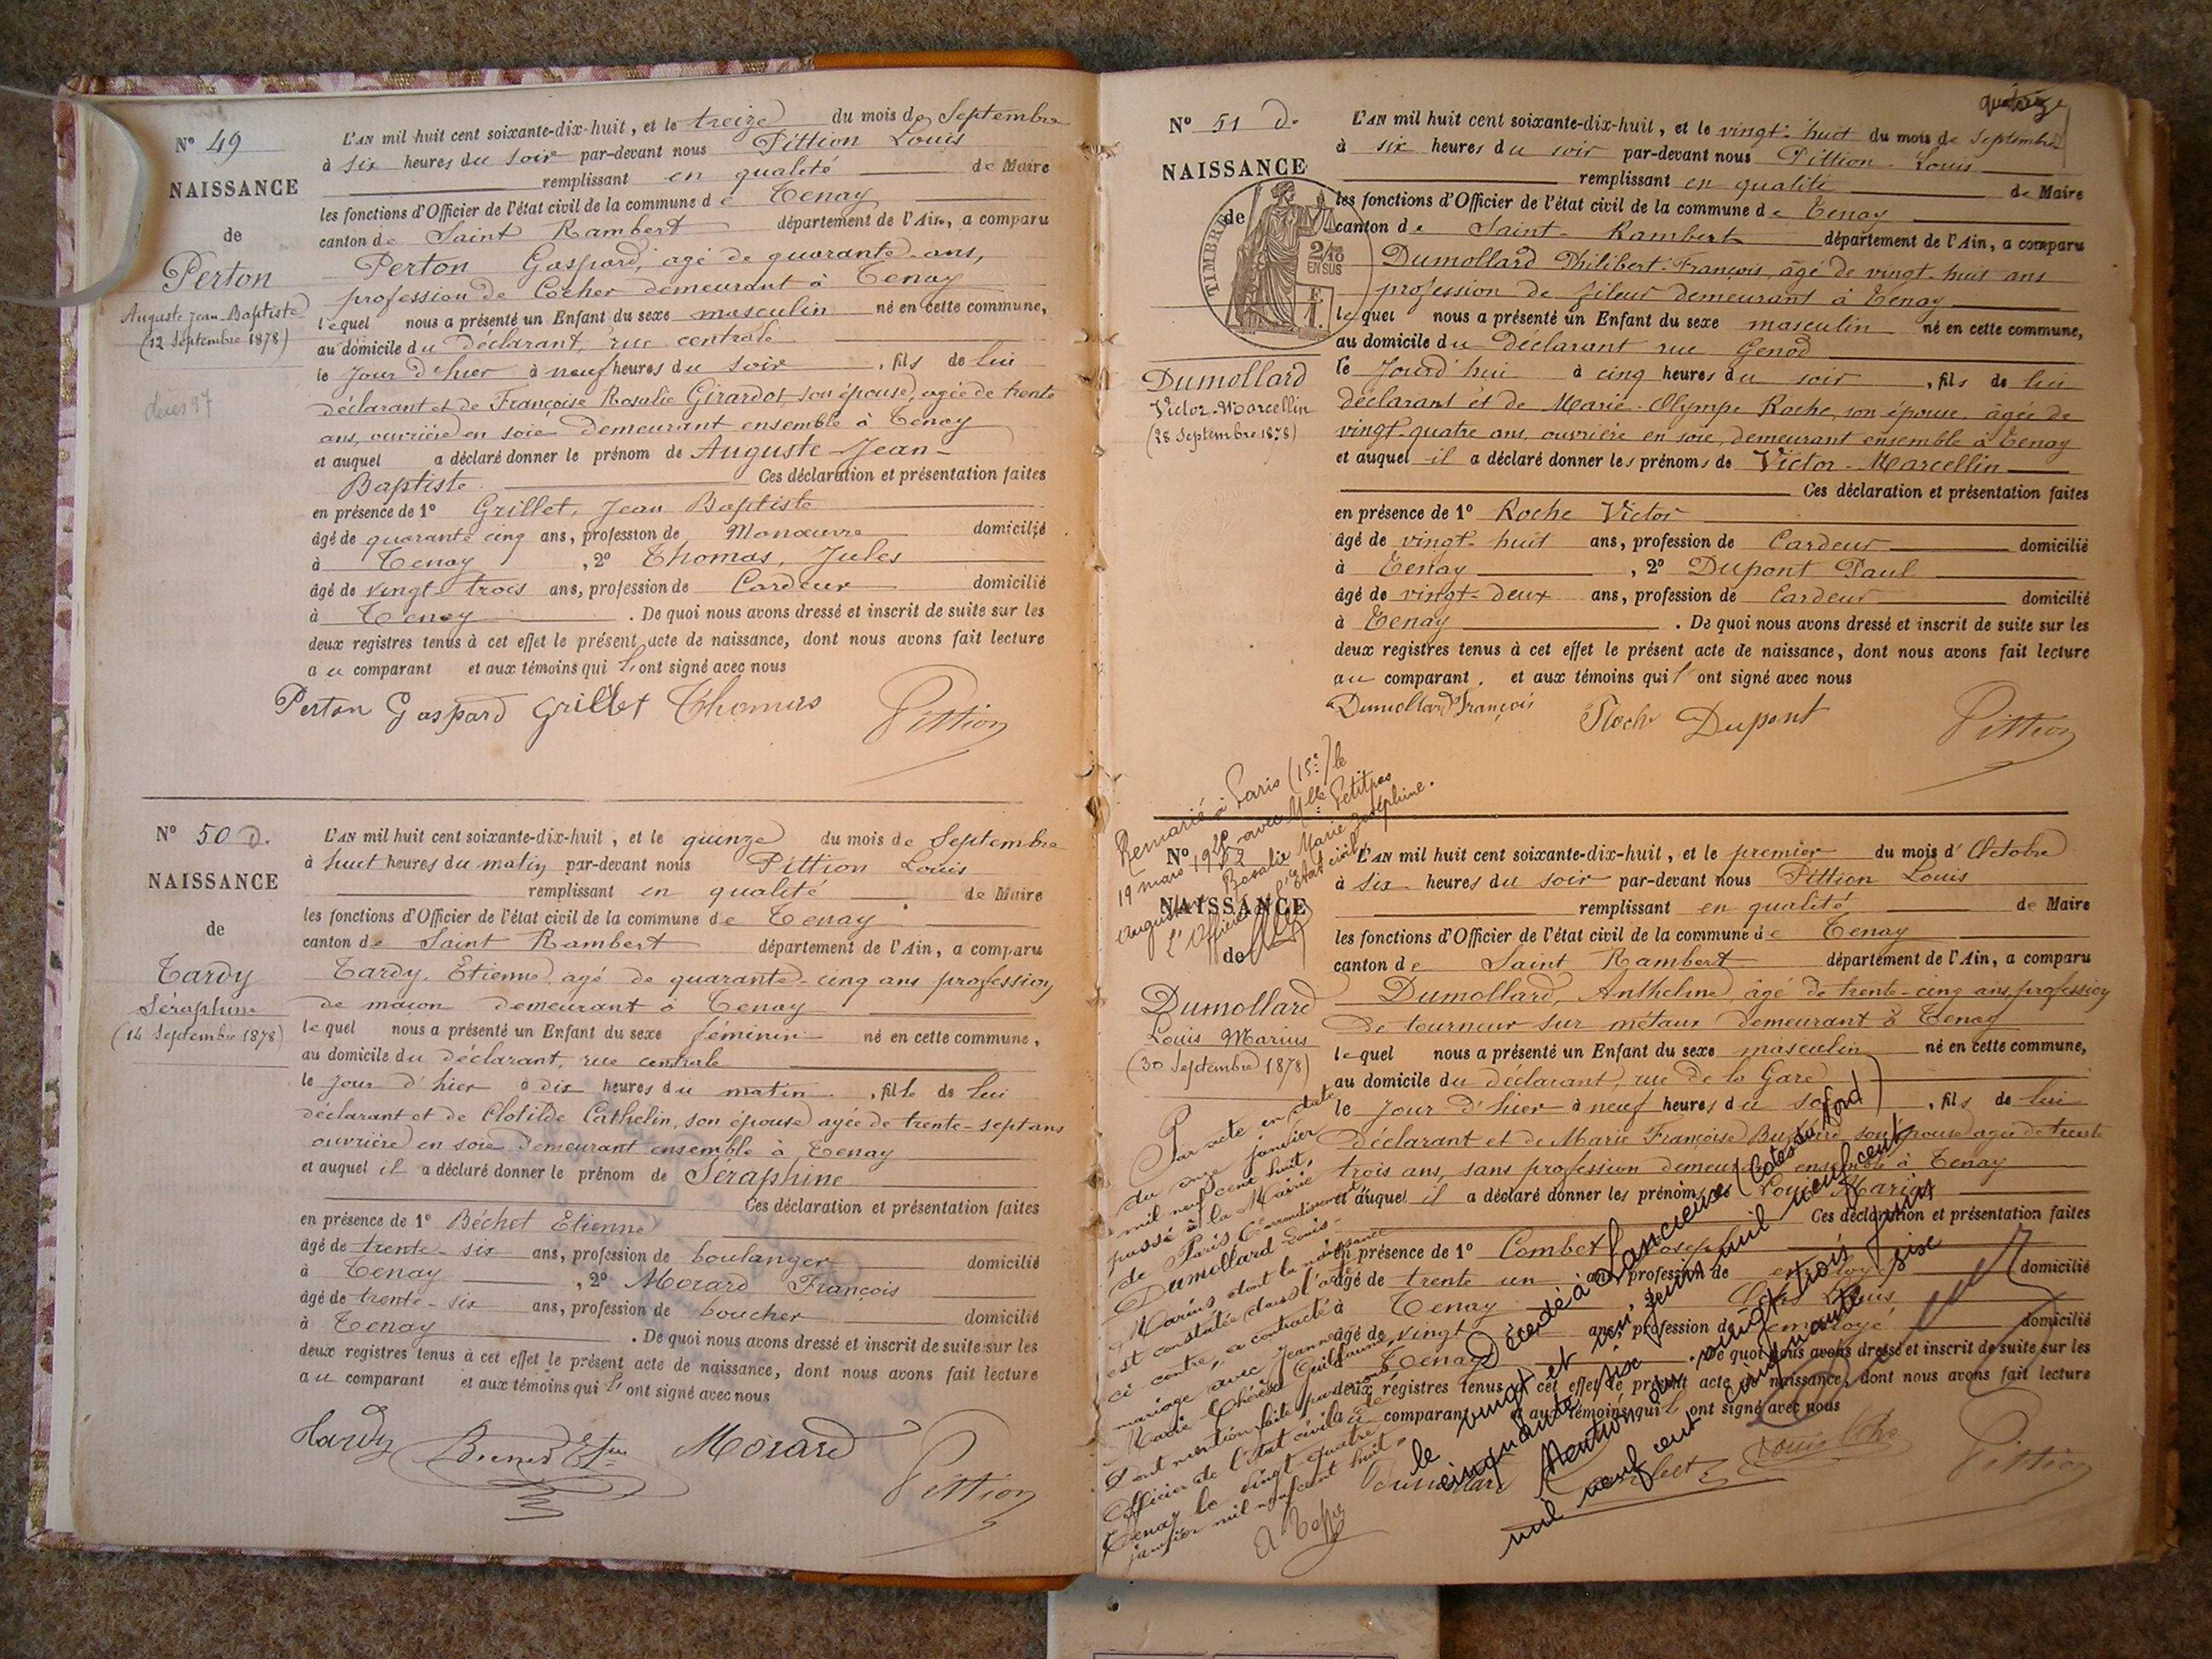 N° 49
NAISSANCE
de
Perton
Auguste Jean-Baptiste
(12 Septembre 1878)
L'AN mil huit cent soixante-dix-huit, et le treize du mois de Septembre
à six heures du soir par-devant nous Pittion Louis
remplissant en qualité de Maire
les fonctions d'Officier de l'état civil de la commune de Tenay
canton de Saint Rambert département de l'Ain, a comparu
Perton Gaspard, agé de quarante ans,
profession de Cocher demeurant à Tenay
lequel nous a présenté un Enfant du sexe masculin né en cette commune,
au domicile du déclarant, rue centrale
le jour d'hier à neuf heures du soir, fils de lui
déclarant et de Françoise Rosalie Girardot, son épouse, agée de trente
ans, ouvrière en soie demeurant ensemble à Tenay
et auquel a déclaré donner le prénom de Auguste-Jean-
Baptiste. Ces déclaration et présentation faites
en présence de 1° Grillet, Jean Baptiste
âgé de quarante cinq ans, profession de Manœuvre domicilié
à Tenay, 2° Thomas, Jules
âgé de vingt-trois ans, profession de Cardeur domicilié
à Tenay. De quoi nous avons dressé et inscrit de suite sur les
deux registres tenus à cet effet le présent acte de naissance, dont nous avons fait lecture
au comparant et aux témoins qui l'ont signé avec nous
Perton Gaspard Grillet Thomas Pittion
N° 50 D.
NAISSANCE
de
Tardy
Séraphine
(14 Septembre 1878)
L'AN mil huit cent soixante-dix-huit, et le quinze du mois de Septembre
à huit heures du matin par-devant nous Pittion Louis
remplissant en qualité de Maire
les fonctions d'Officier de l'état civil de la commune de Tenay
canton de Saint Rambert département de l'Ain, a comparu
Tardy, Etienne, agé de quarante-cinq ans profession
de maçon demeurant à Tenay
lequel nous a présenté un Enfant du sexe féminin né en cette commune,
au domicile du déclarant, rue centrale
le jour d'hier à dix heures du matin, fille de lui
déclarant et de Clotilde Cathelin, son épouse agée de trente-sept ans
ouvrière en soie demeurant ensemble à Tenay
et auquel il a déclaré donner le prénom de Séraphine
Ces déclaration et présentation faites
en présence de 1° Béchet Etienne
âgé de trente-six ans, profession de boulanger domicilié
à Tenay, 2° Morard François
âgé de trente-six ans, profession de boucher domicilié
à Tenay. De quoi nous avons dressé et inscrit de suite sur les
deux registres tenus à cet effet le présent acte de naissance, dont nous avons fait lecture
au comparant et aux témoins qui l'ont signé avec nous
Tardy Morard Pittion
N° 51 D.
NAISSANCE
de
TIMBRE
2/10
EN SUS
Dumollard
Victor-Marcellin
(28 Septembre 1878)
L'AN mil huit cent soixante-dix-huit, et le vingt-huit du mois de Septembre
à six heures du soir par-devant nous Pittion Louis
remplissant en qualité de Maire
les fonctions d'Officier de l'état civil de la commune de Tenay
canton de Saint-Rambert département de l'Ain, a comparu
Dumollard Philibert-François, âgé de vingt-huit ans
profession de fileur demeurant à Tenay
lequel nous a présenté un Enfant du sexe masculin né en cette commune,
au domicile du déclarant rue Genod
le jourd'hui à cinq heures du soir, fils de lui
déclarant et de Marie-Olympe Roche, son épouse, âgée de
vingt-quatre ans, ouvrière en soie, demeurant ensemble à Tenay
et auquel il a déclaré donner les prénoms de Victor-Marcellin
Ces déclaration et présentation faites
en présence de 1° Roche Victor
âgé de vingt-huit ans, profession de Cardeur domicilié
à Tenay, 2° Dupont Paul
âgé de vingt-deux ans, profession de Cardeur domicilié
à Tenay. De quoi nous avons dressé et inscrit de suite sur les
deux registres tenus à cet effet le présent acte de naissance, dont nous avons fait lecture
au comparant, et aux témoins qui l'ont signé avec nous
Dumollard François Roche Dupont Pittion
Remarié à Paris (15e) le
19 mars 1920 avec Mlle Petitpas
Augustine Rosalie Marie Joséphine.
L'Officier de l'Etat civil
N° 52
NAISSANCE
de
Dumollard
Louis Marius
(30 Septembre 1878)
L'AN mil huit cent soixante-dix-huit, et le premier du mois d'Octobre
à six heures du soir par-devant nous Pittion Louis
remplissant en qualité de Maire
les fonctions d'Officier de l'état civil de la commune de Tenay
canton de Saint Rambert département de l'Ain, a comparu
Dumollard, Anthelme, âgé de trente-cinq ans, profession
de tourneur sur métaux demeurant à Tenay
lequel nous a présenté un Enfant du sexe masculin né en cette commune,
au domicile du déclarant, rue de la Gare
le jour d'hier à neuf heures du soir, fils de lui
déclarant et de Marie Françoise son épouse agée de trente
trois ans, sans profession demeurant ensemble à Tenay
et auquel il a déclaré donner les prénoms de Louis Marius
Ces déclaration et présentation faites
en présence de 1° Combet Joseph
âgé de trente un ans, profession de employé domicilié
à Tenay, 2° Louis
âgé de vingt ans, profession de employé domicilié
à Tenay. De quoi nous avons dressé et inscrit de suite sur les
deux registres tenus à cet effet le présent acte de naissance, dont nous avons fait lecture
au comparant et aux témoins qui l'ont signé avec nous
Dumollard Pittion
Par acte en date
du onze janvier
mil neuf cent huit,
passé à la Mairie
de Paris, arrondissement,
Dumollard Louis-
Marius dont la naissance
est constatée dans l'acte
ci contre, a contracté
mariage avec Jeanne
Marie Thérèse Guillaume.
Dont mention faite par nous
Officier de l'état civil de
Tenay le vingt quatre
janvier mil neuf cent huit.
Décédé à Lancieux (Côtes du Nord)
le vingt et un juin mil neuf cent
cinquante six. Mention du vingt trois juin
mil neuf cent cinquante six